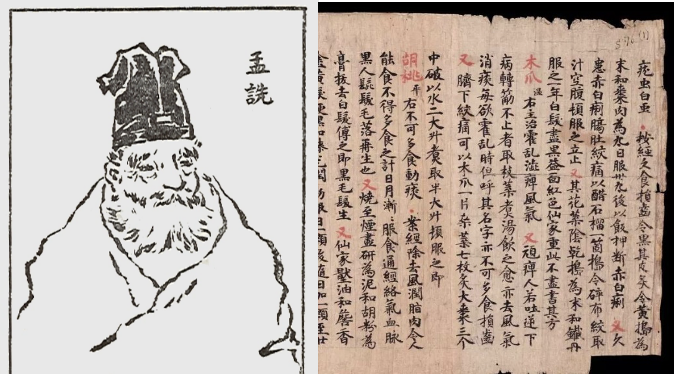 孟詵
疣虫白虫 按經久食損齒令黑其皮炙令黄擣為
末和棗肉為丸日服卅丸後以飯押斷赤白痢 又久
患赤白痢腸肚絞痛以醋石榴一箇擣令碎布絞取
汁空腹頓服之立止 又其花葉陰乾擣為末和鐵丹
服之一年白髮盡黑益面紅色仙家重此不盡書其方
木瓜 温 右主治霍亂澁痺風氣 又頑痺人若吐逆下
病轉筋不止者取枝葉煮湯飲之愈亦去風氣
消痰每欲霍亂時但呼其名字亦不可多食損齒
又 臍下絞痛可以木瓜一片桒葉七枚炙大棗三个
中破以水二大升煮取半大升頓服之即
胡桃 平 右不可多食動痰 案經除去風潤脂肉令人
能食不得多食之計日月漸〻服食通經絡氣血脉
黑人鬚髮毛落再生也 又燒至烟盡研為泥和胡粉為
膏拔去白髮傅之即黑毛髮生 又仙家壓油和詹香